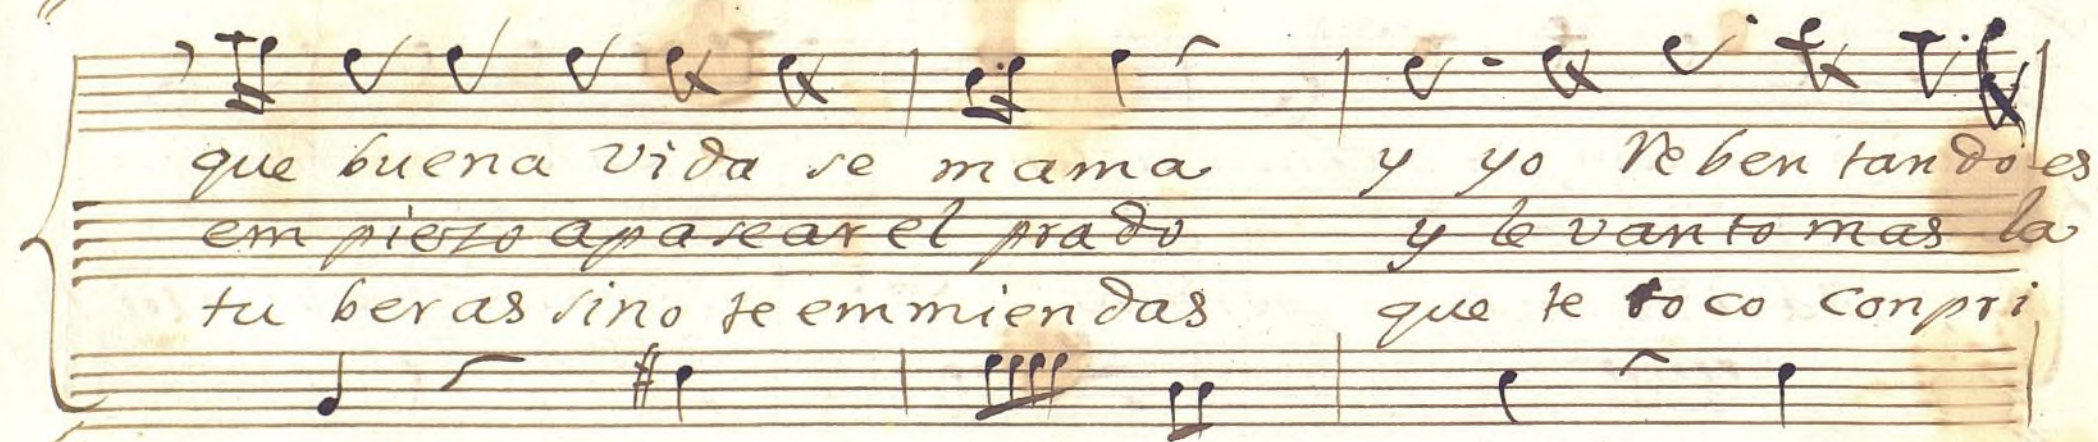 que buena vida se mama y yo Reben tando es
em piezo apasear el prado y le vanto mas la
tu beras sino te emmiendas que te toco con pri